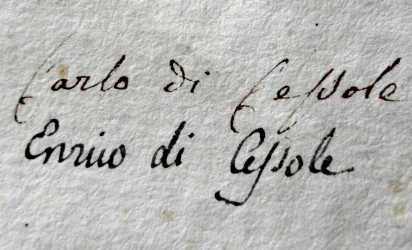 Carlo di Cessole
Enrico di Cessole